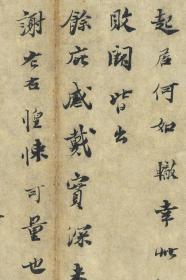 起居何如轍幸此
敗闕皆出
餘庇感戴實深未
謝左右惶悚可量也